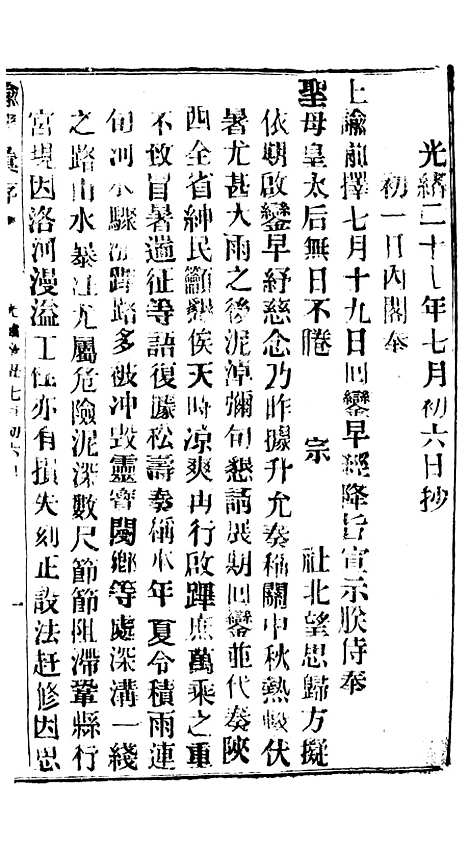 光緒二十七年七月初六日抄
初一日內閣奉
上諭前擇七月十九日回鑾早經降旨宣示朕侍奉
聖母皇太后無日不惓 宗 社北望思歸方擬
依期啟鑾早紓慈念乃昨據升允奏稱關中秋熱較伏
暑尤甚大雨之後泥淖彌旬懇請展期回鑾並代奏陝
西全省紳民籲懇俟天時涼爽再行啟蹕庶萬乘之重
不致冒暑遄征等語復據松壽奏稱本年夏令積雨連
旬河水驟漲蹕路多被冲毀靈寶閿鄉等處深溝一綫
之路山水暴注尤屬危險泥深數尺節節阻滯鞏縣行
宮現因洛河漫溢工程亦有損失刻正設法赶修因思
諭摺彙存
光緒 七月初六日 一